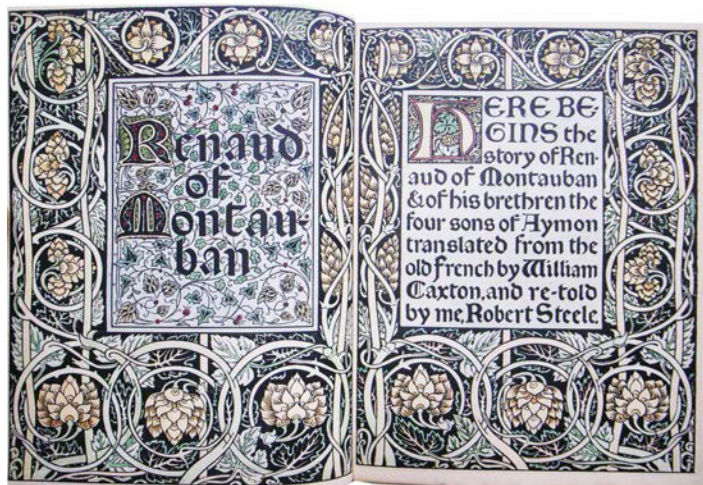 Renaud
of
Montau-
ban
HERE BE-
GINS the
story of Ren-
aud of Montauban
& of his brethren the
four sons of Aymon
translated from the
old french by William
Caxton, and re-told
by me, Robert Steele.